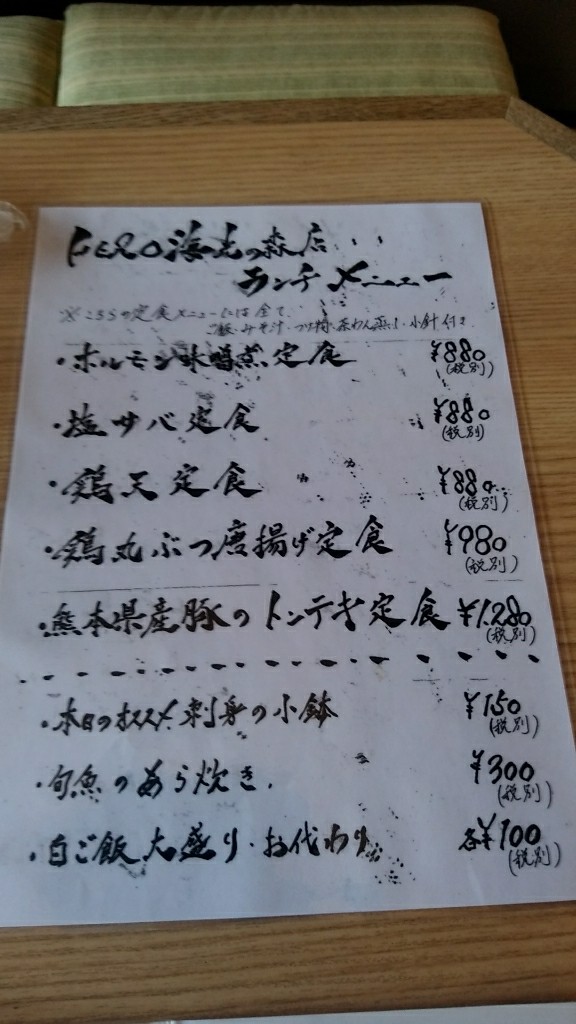 海の森店
ランチメニュー
※こちらの定食メニューには全て
ご飯・みそ汁・つけ物・茶わん蒸し・小鉢付き
・ホルモン味噌煮定食 ¥880
(税別)
・塩サバ定食 ¥880
(税別)
・鶏天定食 ¥880
(税別)
・鶏丸ぶつ唐揚げ定食 ¥980
(税別)
・熊本県産豚のトンテキ定食 ¥1.280
(税別)
・本日のオススメ刺身の小鉢 ¥150
(税別)
・旬魚のあら炊き. ¥300
(税別)
・白ご飯大盛り・お代わり 各¥100
(税別)